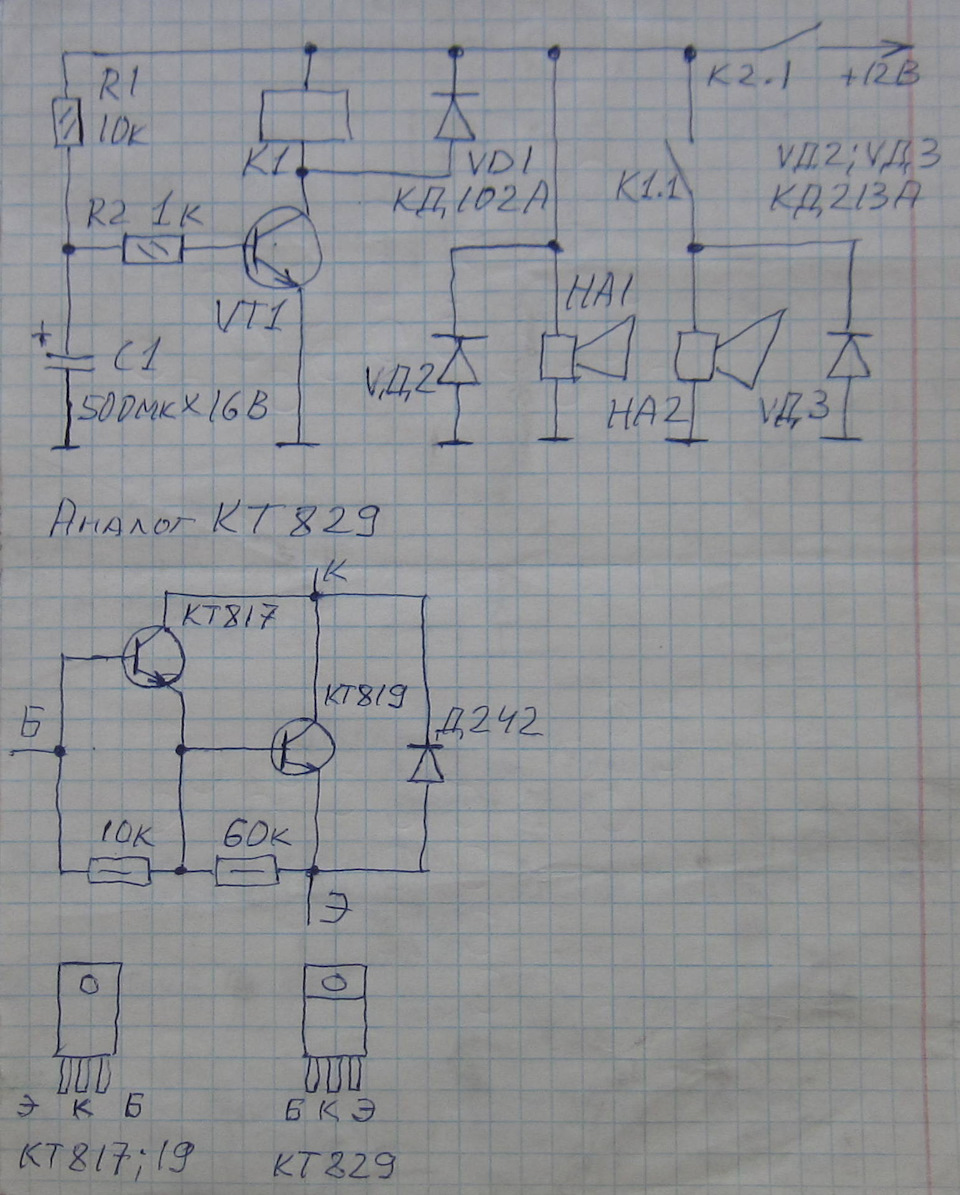 R1
10к
К1
VD1
КД102А
К2.1 +12В
К1.1
VД2; VД3
КД213А
R2 1к
VT1
+
C1
500мк×16В
VД2
HA1
HA2
VД3
Аналог КТ829
К
КТ817
КТ819
Б
Д242
10к
60к
Э
Э К Б
Б К Э
КТ817;19
КТ829